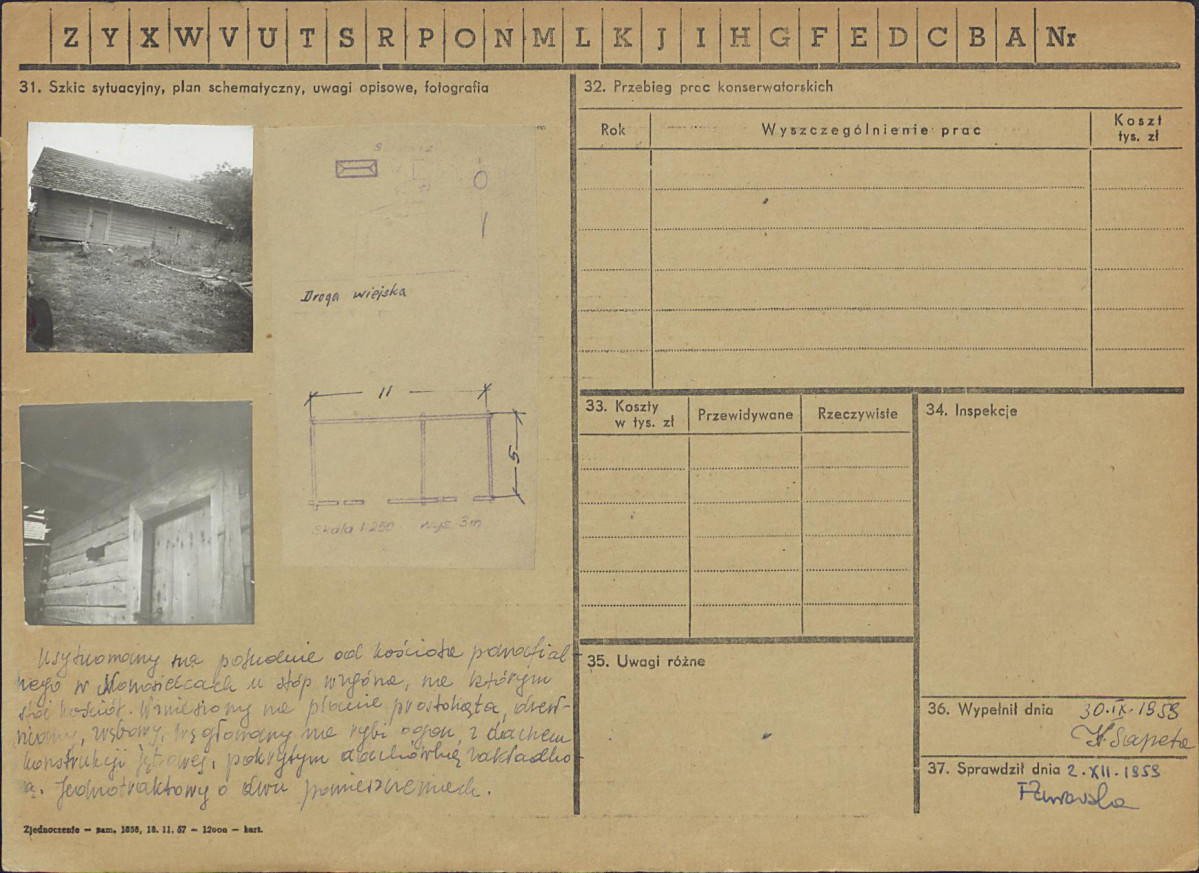 Z Y X W V U T S R P O N M L K J I H G F E D C B A Nr
31. Szkic sytuacyjny, plan schematyczny, uwagi opisowe, fotografia
Droga wiejska
11
5
Skala 1:250 wys. 3m
Usytuowany na południe od kościoła parafial-
nego w Nowosielcach u stóp wzgórza, na którym
stoi kościół. Wzniesiony na planie prostokąta, drew-
niany, zrębowy, węgłowany na rybi ogon, z dachem
konstrukcji jętkowej, pokrytym dachówką zakładko-
ą. Jednotraktowy o dwu pomieszczeniach.
Zjednoczenie — zam. 1856, 18. 11. 57 — 12000 — kart.
32. Przebieg prac konserwatorskich
Rok Wyszczególnienie prac Koszt
tys. zł
33. Koszty
w tys. zł Przewidywane Rzeczywiste
34. Inspekcje
35. Uwagi różne
36. Wypełnił dnia 30.IX.1959
37. Sprawdził dnia 2.XII.1959